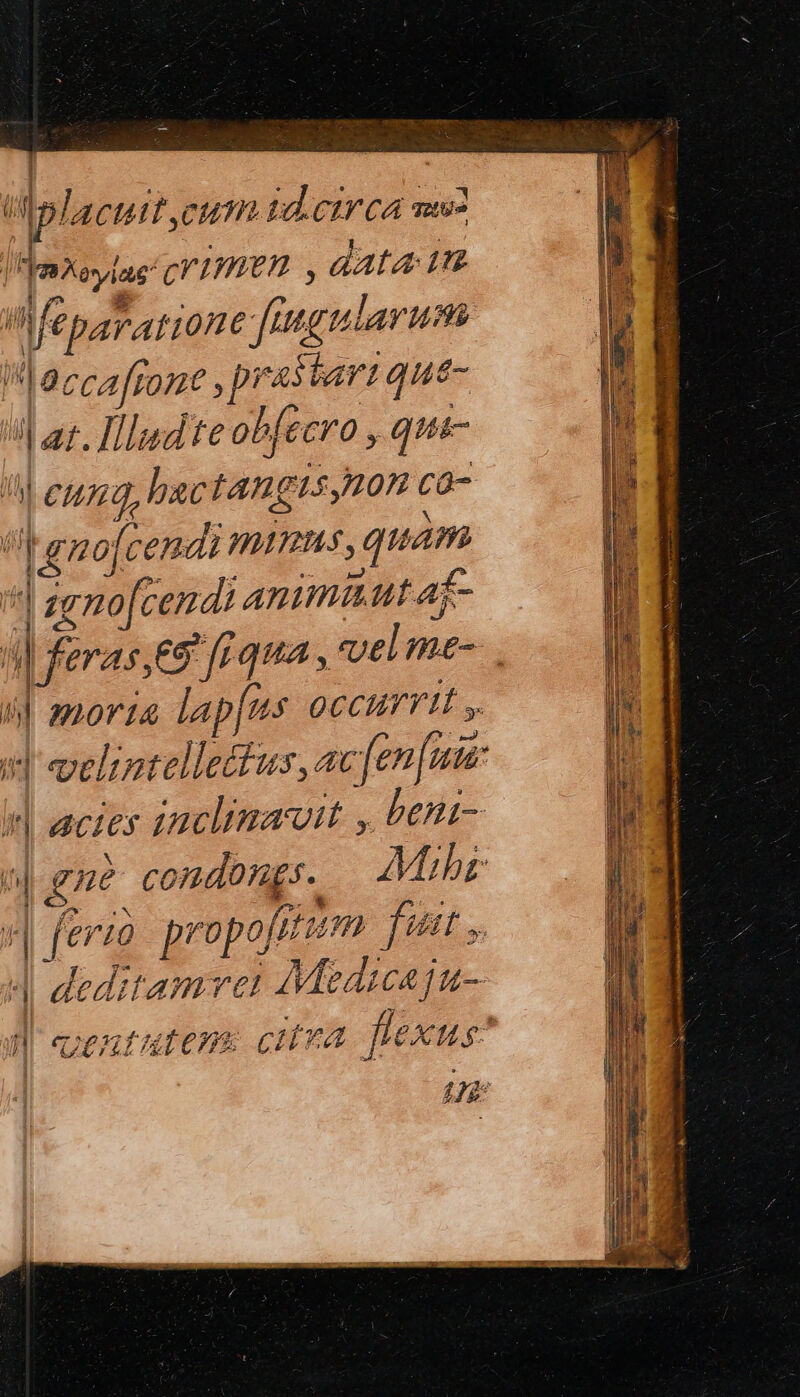 placuit, cum id circa ταυ-
τολογίας crimen, data in
ſeparatione ſingularum
occaſione, præſtari que-
at. Illud te obſecro, qui-
cunq, hæc tangis, non co-
gnoſcendi minus, quàm
ignoſcendi animũ ut af-
feras, & ſi qua, vel me-
moriæ lapſus occurrit,
vel intellectus, ac ſenſuũ
acies inclinavit, beni-
gnè condones. Mihi
feriò propoſitum fuit,
deditam rei Medicæ ju-
ventutem citra flexus
in